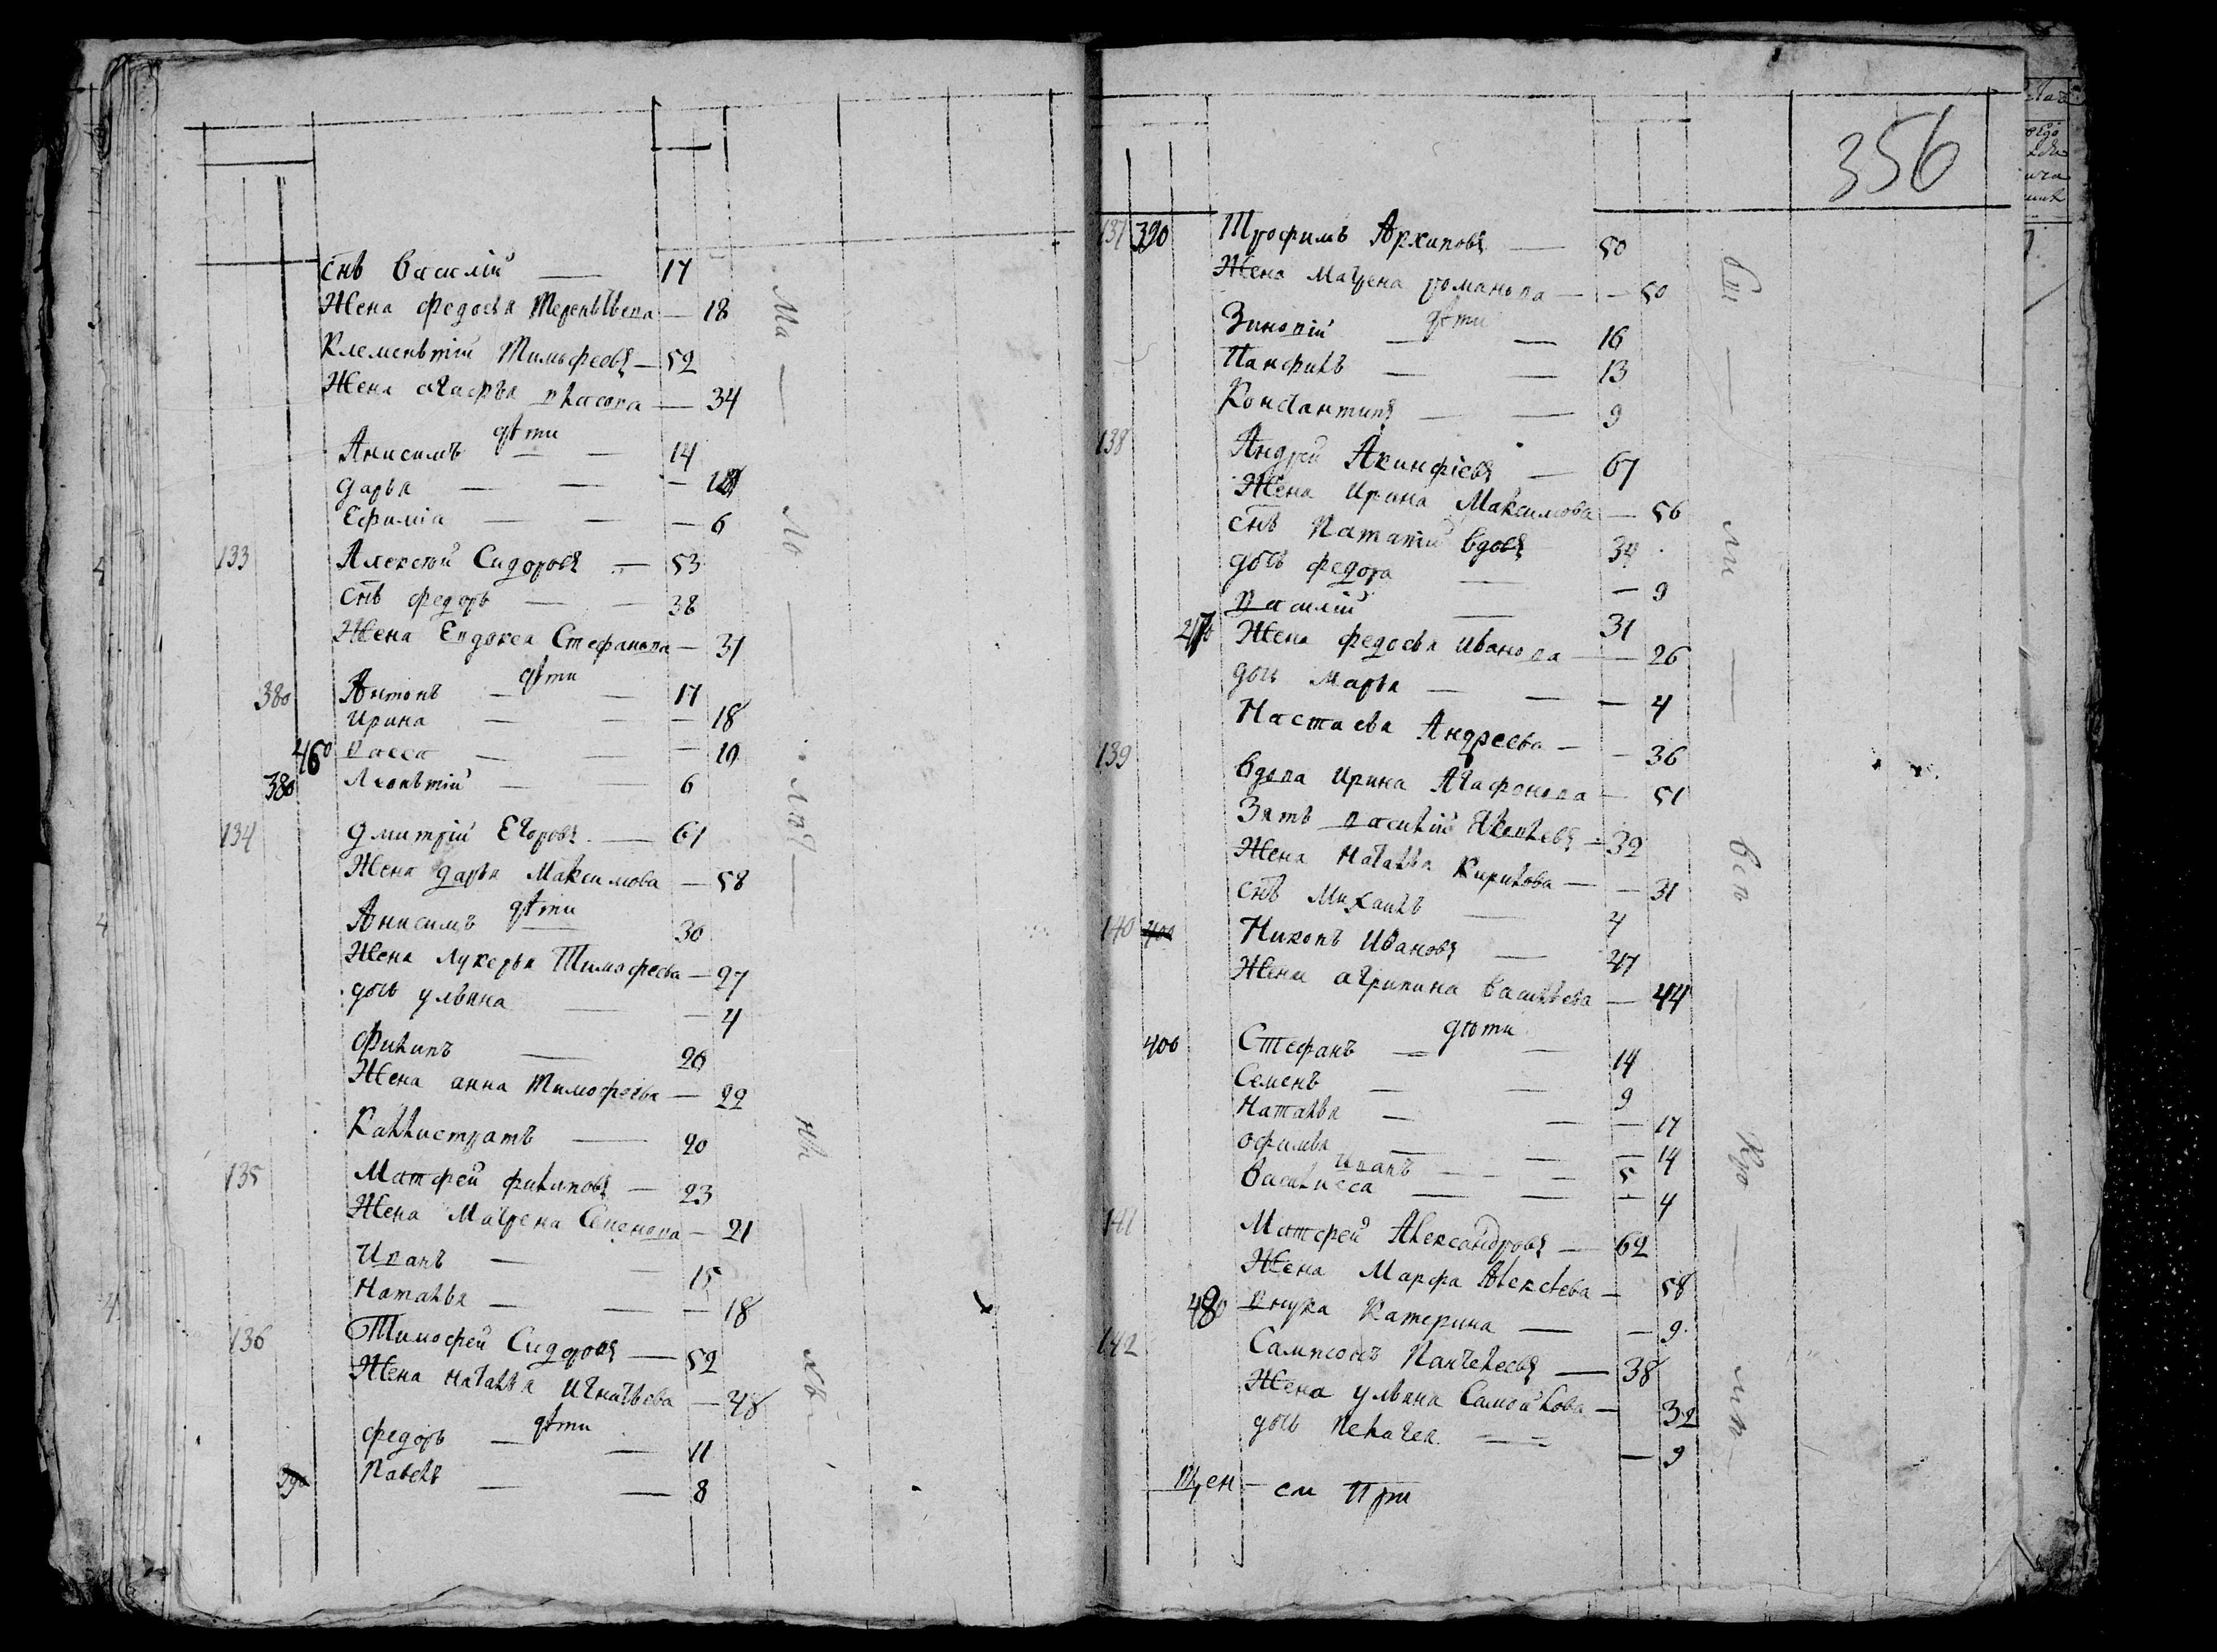 356
снъ Василий — 17
Жена Федосья Терентьева — 18
Клементий Тимофеевъ — 52
Жена Агафья Власова — 34
дѣти
Анисимъ — — 14
Дарья — — — 12
Ефимiа — — — 6
133 Алексѣй Сидоровъ — 53
снъ Федоръ — — 38
Жена Евдокеа Стефанова — 31
дѣти
380 Антонъ — — 17
Ирина — — — 18
460 Васса — — — 10
380 Леонтiй — — 6
134 Дмитрiй Егоровъ — 61
Жена Дарья Максимова — 58
дѣти
Анисимъ — 30
Жена Лукерья Тимофеева — 27
дочь Ульяна — — 4
Филипъ — 26
Жена Анна Тимофеева — 22
Каллистратъ — 20
135 Матфей Филиповъ — 23
Жена Матрена Семенова — 21
Иванъ — — 15
Наталья — — — 18
136 Тимофей Сидоровъ — 52
Жена Наталья Игнатьева — 48
дѣти
Федоръ — — 11
390 Павелъ — — 8
Ма — Ло — Лѣд — нь — хъ
137 390 Трофимъ Архиповъ — 50
Жена Матрена Романова — — 50
дѣти
Зиновiй — — 16
Панфилъ — — 13
Константинъ — — 9
138 Андрей Акинфiевъ — 67
Жена Ирина Максимова — 56
снъ Ипатiй вдовъ 34
дочь Федора — — 9
Василiй — 31
470 Жена Федосья Иванова — — 26
дочь Марья — — — 4
Настасья Андреева — — 36
139 Вдова Ирина Агафонова — 51
Зять Василiй Яковлевъ — 32
Жена Наталья Кирилова — — 31
снъ Михаилъ — 4
140 400 Никонъ Ивановъ — 47
Жена Агрипина Васильева — 44
дѣти
400 Стефанъ — — 14
Семенъ — — 9
Наталья — — — 17
Офимья — — — 14
Иванъ — — — 5
Василисса — — — 4
141 Матфей Александровъ — 62
Жена Марфа Алексѣева — 58
480 Внука Катерина — — 9
142 Сампсонъ Пантелеевъ — 38
Жена Ульяна Самойлова — 32
дочь Пелагея — — 9